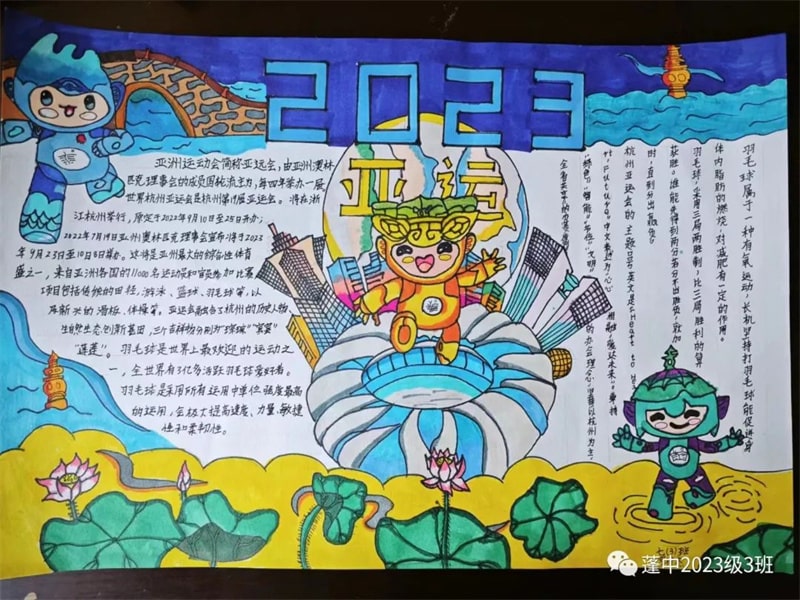 2023
亚运
亚洲运动会简称亚运会,由亚洲奥林
匹克理事会的成员国轮流主办,每四年举办一届
世界杭州亚运会是杭州第19届亚运会。将在浙
江杭州举行,原定于2022年9月10日至25日举办;
2022年7月19日亚洲奥林匹克理事会宣布将于2023
年9月23日至10月8日举办。这将是亚洲最大的综合性体育
盛之一,来自亚洲各国的11000名运动员和官员参加比赛
项目包括传统的田径,游泳、篮球、羽毛球等,以
及新兴的滑板、体操等。亚运会融合了杭州的历史人物、
生的态创新基因,三个吉祥物分别为"琮琮""宸宸"
"莲莲"。羽毛球是世界上最欢迎的运动之
一,全世界有3亿多活跃羽毛球爱好者。
羽毛球是采用所有运用中单位强度最高
的运用,会极大提高速度、力量、敏捷
性和柔韧性。
羽毛球属于一种有氧运动,长机坚持打羽毛球能促进身
体内脂肪的燃烧,对减肥有一定的作用。
羽毛球,采用三局两胜制,比三局胜利的算
获胜。谁能先得到两分若分不出胜负,就加
时,直到分出胜负。
杭州亚运会的主题口号英文是Heart to H
Future,中文表述为:心心
相融,@爱达未来"。秉持
"绿色""智能""节俭""文明"
的办会理念,坚持以杭州为主,
七(3)班
蓬中2023级3班